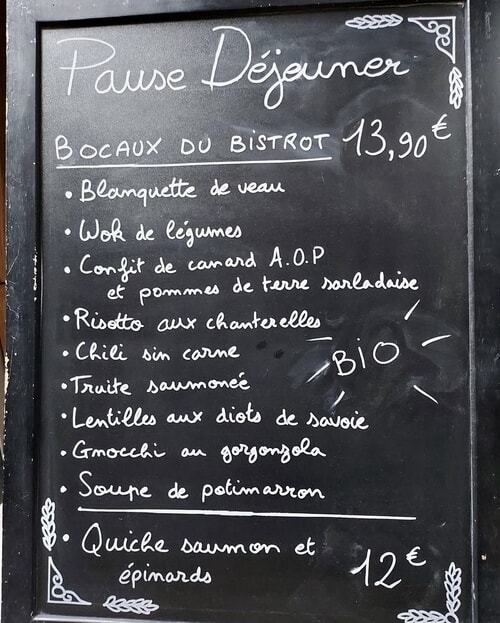 Pause Déjeuner
BOCAUX DU BISTROT 13,90€
• Blanquette de veau
• Wok de légumes
• Confit de canard A.O.P
et pommes de terre sarladaise
• Risotto aux chanterelles
• Chili sin carne
BIO
• Truite saumonée
• Lentilles aux diots de savoie
• Gnocchi au gorgonzola
• Soupe de potimarron
• Quiche saumon et
épinards 12€